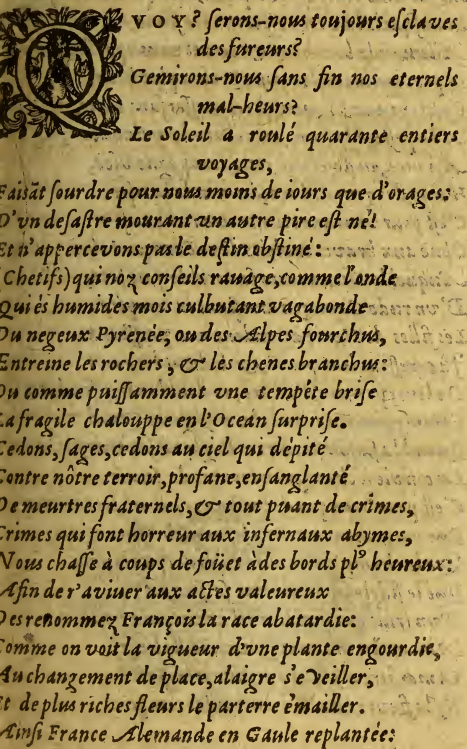 QVOY? ſerons-nous toujours eſclaves
des fureurs?
Gemirons-nous ſans fin nos eternels
mal-heurs?
Le Soleil a roulé quarante entiers
voyages,
Faisãt ſourdre pour nous moins de iours que d'orages:
D'vn deſaſtre mourant vn autre pire eſt né!
Et n'appercevons pas le deſtin obſtiné:
(Chetifs) qui noz conſeils rauàge, comme l'onde
Qui és humides mois culbutant vagabonde
Du negeux Pyrenée, ou des Alpes fourchus,
Entreine les rochers, & les chenes branchus:
Ou comme puiſſamment vne tempéte briſe
La fragile chalouppe en l'Ocean ſurpriſe.
Cedons, ſages, cedons au ciel qui dépité
Contre nôtre terroir, profane, enſanglanté
De meurtres fraternels, & tout puant de crimes,
Crimes qui font horreur aux infernaux abymes,
Nous chaſſe à coups de foüet à des bords plꝰ heureux:
Afin de r'aviuer aux actes valeureux
Des renommez François la race abatardie:
Comme on voit la vigueur d'vne plante engourdie,
Au changement de place, alaigre s'eveiller,
Et de plus riches fleurs le parterre émailler.
Ainſi France Alemande en Gaule replantée: